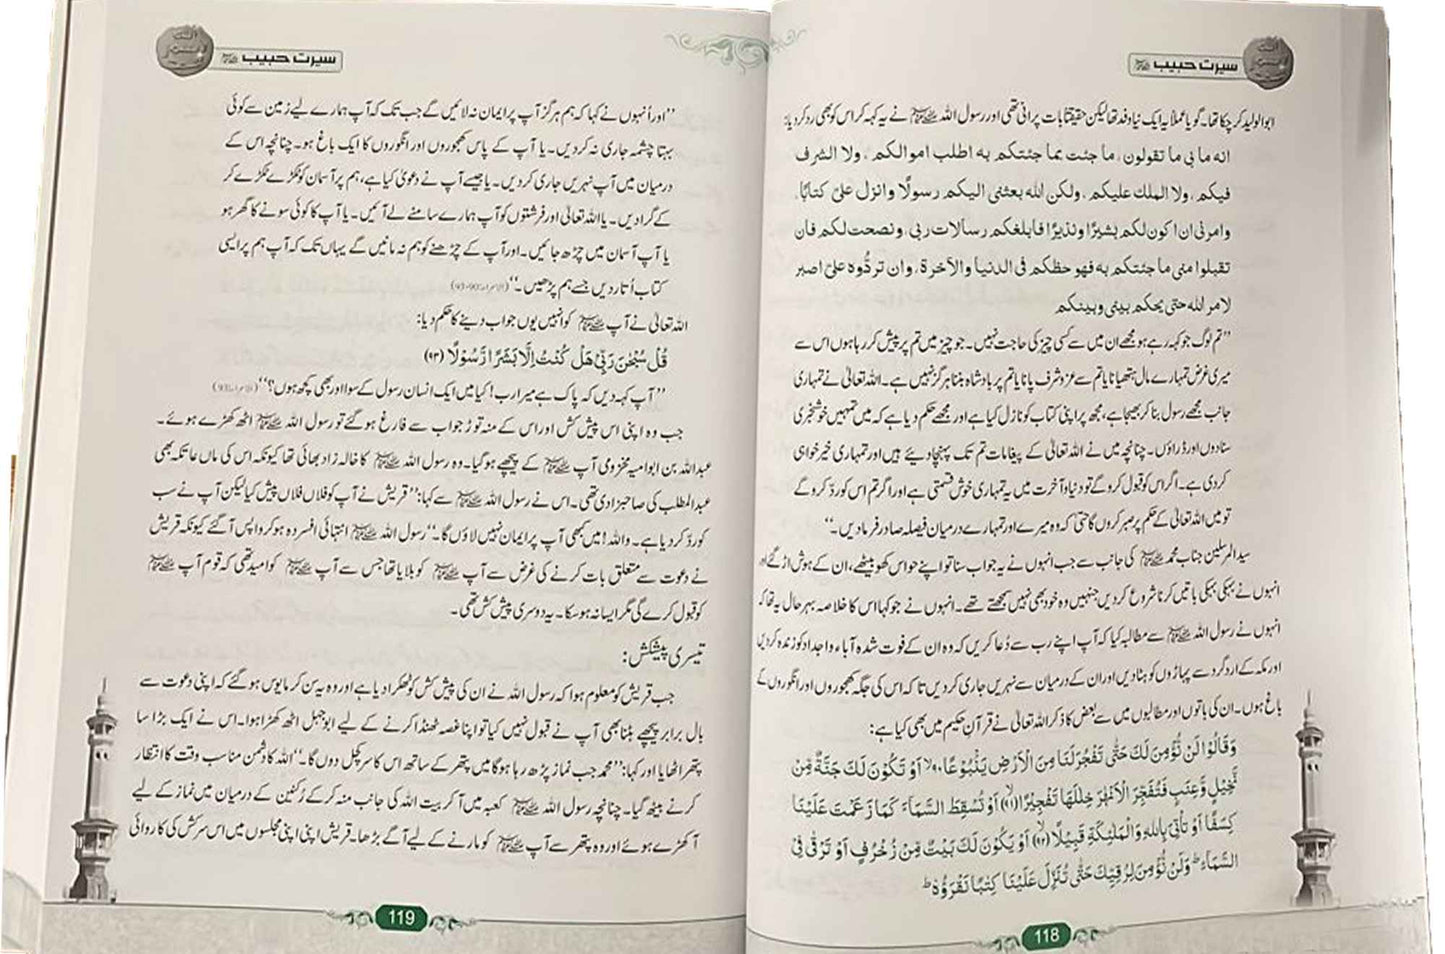 سیرت حبیب ﷺ
ابوالولید کر چکا تھا۔ گویا عملاً یہ ایک نیا وفد تھا لیکن حقیقتًا بات پرانی تھی اور رسول اللہ ﷺ نے یہ کہہ کر اس کو بھی رد کر دیا:
انه ما بی ما تقولون، ما جئت بما جئتکم به اطلب اموالکم، ولا الشرف
فیکم، ولا الملك علیکم، ولکن الله بعثنی الیکم رسولًا وانزل علیّ کتابًا،
وامرنی ان اکون لکم بشیرًا ونذیرًا فابلغکم رسالات ربی، ونصحت لکم فان
تقبلوا منی ما جئتکم به فهو حظکم فی الدنیا والآخرة، وان تردُّوه علیّ اصبر
لامر الله حتی یحکم بینی وبینکم
”تم لوگ جو کہہ رہے ہو مجھے ان میں سے کسی چیز کی حاجت نہیں۔ جو چیز میں تم پر پیش کر رہا ہوں اس سے
میری غرض تمہارے مال ہتھیانا یا تم سے عزوشرف پانا یا تم پر بادشاہ بننا ہرگز نہیں ہے۔ اللہ تعالیٰ نے تمہاری
جانب مجھے رسول بنا کر بھیجا ہے، مجھ پر اپنی کتاب کو نازل کیا ہے اور مجھے حکم دیا ہے کہ میں تمہیں خوشخبری
سنادوں اور ڈراؤں۔ چنانچہ میں نے اللہ تعالیٰ کے پیغامات تم تک پہنچا دیئے ہیں اور تمہاری خیرخواہی
کردی ہے۔ اگر اس کو قبول کرو گے تو دنیا و آخرت میں یہ تمہاری خوش قسمتی ہے اور اگر تم اس کو ردّ کرو گے
تو میں اللہ تعالیٰ کے حکم پر صبر کروں گا حتیٰ کہ وہ میرے اور تمہارے درمیان فیصلہ صادر فرما دیں۔“
سید المرسلین جناب محمد ﷺ کی جانب سے جب انہوں نے یہ جواب سنا تو اپنے حواس کھو بیٹھے، ان کے ہوش اڑ گئے اور
انہوں نے بہکی بہکی باتیں کرنا شروع کر دیں جنہیں وہ خود بھی نہیں سمجھتے تھے۔ انہوں نے جو کہا اس کا خلاصہ بہرحال یہ تھا کہ
انہوں نے رسول اللہ ﷺ سے مطالبہ کیا کہ آپ اپنے رب سے دُعا کریں کہ وہ ان کے فوت شدہ آباء واجداد کو زندہ کر دیں
اور مکہ کے اردگرد سے پہاڑوں کو ہٹا دیں اور ان کے درمیان سے نہریں جاری کر دیں تا کہ اس کی جگہ کھجوروں اور انگوروں کے
باغ ہوں۔ ان کی باتوں اور مطالبوں میں سے بعض کا ذکر اللہ تعالیٰ نے قرآن حکیم میں بھی کیا ہے:
وَقَالُوْا لَنْ نُّؤْمِنَ لَكَ حَتّٰى تَفْجُرَ لَنَا مِنَ الْاَرْضِ يَنْۢبُوْعًا ۙ﴿۹۰﴾ اَوْ تَكُوْنَ لَكَ جَنَّةٌ مِّنْ
نَّخِيْلٍ وَّعِنَبٍ فَتُفَجِّرَ الْاَنْهٰرَ خِلٰلَهَا تَفْجِيْرًا ۙ﴿۹۱﴾ اَوْ تُسْقِطَ السَّمَآءَ كَمَا زَعَمْتَ عَلَيْنَا
كِسَفًا اَوْ تَاْتِيَ بِاللّٰهِ وَالْمَلٰٓئِكَةِ قَبِيْلًا ۙ﴿۹۲﴾ اَوْ يَكُوْنَ لَكَ بَيْتٌ مِّنْ زُخْرُفٍ اَوْ تَرْقٰى فِي
السَّمَآءِ ؕ وَلَنْ نُّؤْمِنَ لِرُقِيِّكَ حَتّٰى تُنَزِّلَ عَلَيْنَا كِتٰبًا نَّقْرَؤُهٗ ؕ
118
سیرت حبیب ﷺ
”اور اُنہوں نے کہا کہ ہم ہرگز آپ پر ایمان نہ لائیں گے جب تک کہ آپ ہمارے لیے زمین سے کوئی
بہتا چشمہ جاری نہ کردیں۔ یا آپ کے پاس کھجوروں اور انگوروں کا ایک باغ ہو۔ چنانچہ اس کے
درمیان میں آپ نہریں جاری کردیں۔ یا جیسے آپ نے دعویٰ کیا ہے، ہم پر آسمان کو ٹکڑے ٹکڑے کر
کے گرا دیں۔ یا اللہ تعالیٰ اور فرشتوں کو آپ ہمارے سامنے لے آئیں۔ یا آپ کا کوئی سونے کا گھر ہو
یا آپ آسمان میں چڑھ جائیں۔ اور آپ کے چڑھنے کو ہم نہ مانیں گے یہاں تک کہ آپ ہم پر ایسی
کتاب اُتار دیں جسے ہم پڑھیں۔“ (الاسراء:90-93)
اللہ تعالیٰ نے آپ ﷺ کو انہیں یوں جواب دینے کا حکم دیا:
قُلْ سُبْحٰنَ رَبِّيْ هَلْ كُنْتُ اِلَّا بَشَرًا رَّسُوْلًا ﴿۹۳﴾
”آپ کہہ دیں کہ پاک ہے میرا رب! کیا میں ایک انسان رسول کے سوا اور بھی کچھ ہوں؟“ (الاسراء:93)
جب وہ اپنی اس پیش کش اور اس کے منہ توڑ جواب سے فارغ ہو گئے تو رسول اللہ ﷺ اٹھ کھڑے ہوئے۔
عبداللہ بن ابوامیہ مخزومی آپ ﷺ کے پیچھے ہو گیا۔ وہ رسول اللہ ﷺ کا خالہ زاد بھائی تھا کیونکہ اس کی ماں عاتکہ بھی
عبدالمطلب کی صاحبزادی تھی۔ اس نے رسول اللہ ﷺ سے کہا: ”قریش نے آپ کو فلاں فلاں پیش کیا لیکن آپ نے سب
کو ردّ کر دیا ہے۔ واللہ! میں کبھی آپ پر ایمان نہیں لاؤں گا۔“ رسول اللہ ﷺ انتہائی افسردہ ہو کر واپس آ گئے کیونکہ قریش
نے دعوت سے متعلق بات کرنے کی غرض سے آپ ﷺ کو بلایا تھا جس سے آپ ﷺ کو امید تھی کہ قوم آپ ﷺ
کو قبول کرے گی مگر ایسا نہ ہو سکا۔ یہ دوسری پیش کش تھی۔
تیسری پیشکش:
جب قریش کو معلوم ہوا کہ رسول اللہ نے ان کی پیش کش کو ٹھکرا دیا ہے اور وہ یہ سن کر مایوس ہو گئے کہ اپنی دعوت سے
بال برابر پیچھے ہٹنا بھی آپ نے قبول نہیں کیا تو اپنا غصہ ٹھنڈا کرنے کے لیے ابوجہل اٹھ کھڑا ہوا۔ اس نے ایک بڑا سا
پتھر اٹھایا اور کہا: ”محمد جب نماز پڑھ رہا ہو گا میں پتھر کے ساتھ اس کا سر کچل دوں گا۔“ اللہ کا دشمن مناسب وقت کا انتظار
کرنے بیٹھ گیا۔ چنانچہ رسول اللہ ﷺ کعبہ میں آ کر بیت اللہ کی جانب منہ کر کے رُکنین کے درمیان میں نماز کے لیے
آ کھڑے ہوئے اور وہ پتھر سے آپ ﷺ کو مارنے کے لیے آگے بڑھا۔ قریش اپنی اپنی مجلسوں میں اس سرکش کی کاروائی
119